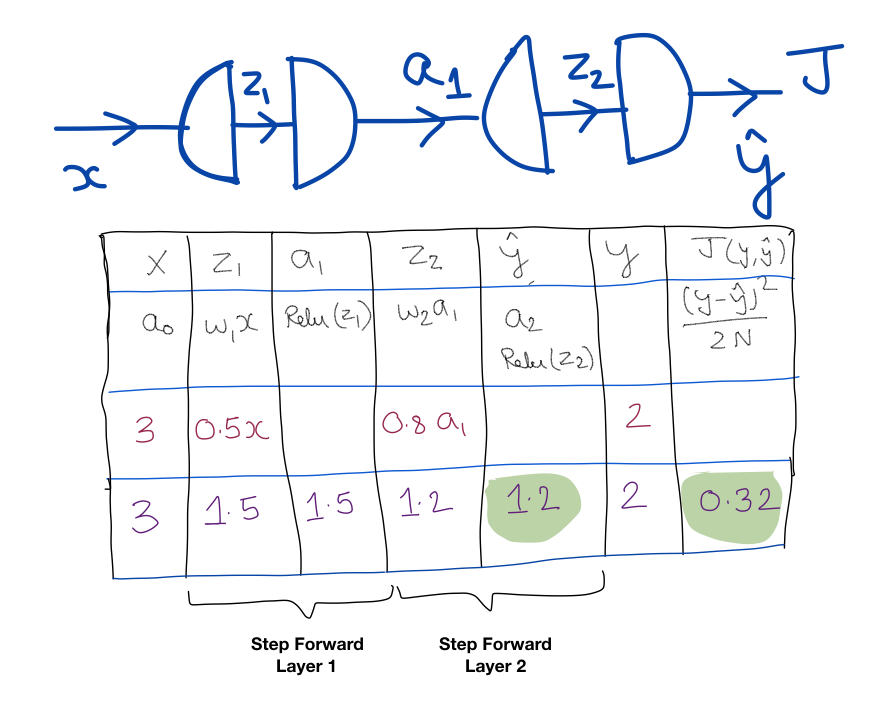 x
z₁
a₁
z₂
J
ŷ
X z₁ a₁ z₂ ŷ y J(y,ŷ)
a₀ w₁x Relu(z₁) w₂a₁ a₂ Relu(z₂) (y-ŷ)² / 2N
3 0.5x 0.8a₁ 2
3 1.5 1.5 1.2 1.2 2 0.32
Step Forward
Layer 1
Step Forward
Layer 2